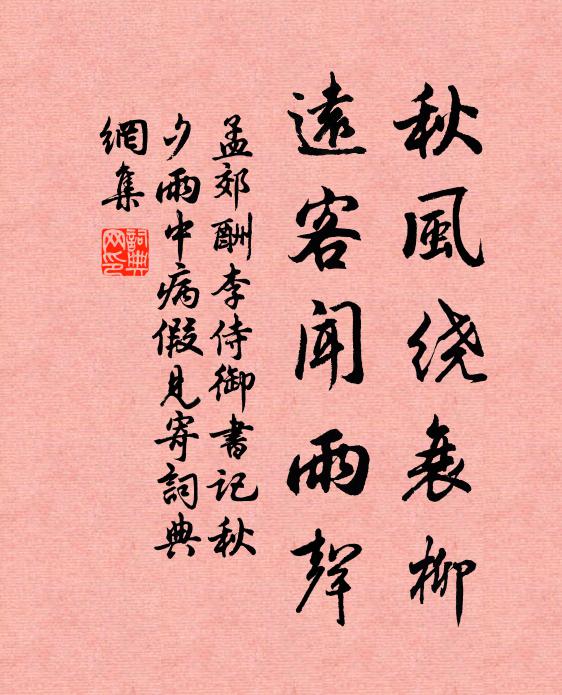 秋風绕衰柳
遠客闻雨聲
孟郊酬李侍御書记秋
夕雨中病假见寄詞典
網集
詞典
网印